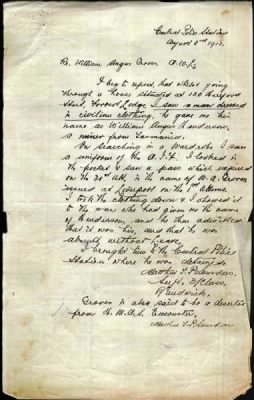 Central Police Station
August 2nd 191
Re. William Angus Groves A.W.L.
I beg to report, that whilst going
through a house situated at 120
Street, Forest Lodge, I saw a man dressed
in civilian clothing, he gave me his
name as William Angus Henderson,
a miner from Tasmania.
On searching in a wardrobe I saw
a uniform of the A.I.F. I looked in
the pockets & saw a pass which expired
on the 30th Ult. in the name of W. A. Groves
issued at Liverpool on the
I took the clothing down & showed it
to the man who had given me the name
of Henderson, and he then admitted
that it was him, and that he was
absent without leave.
I brought him to the Central Police
Station where he was detained.
Saunders
Class
Randwick.
Groves is also said to be a deserter
from the H.M.A.S. Encounter.